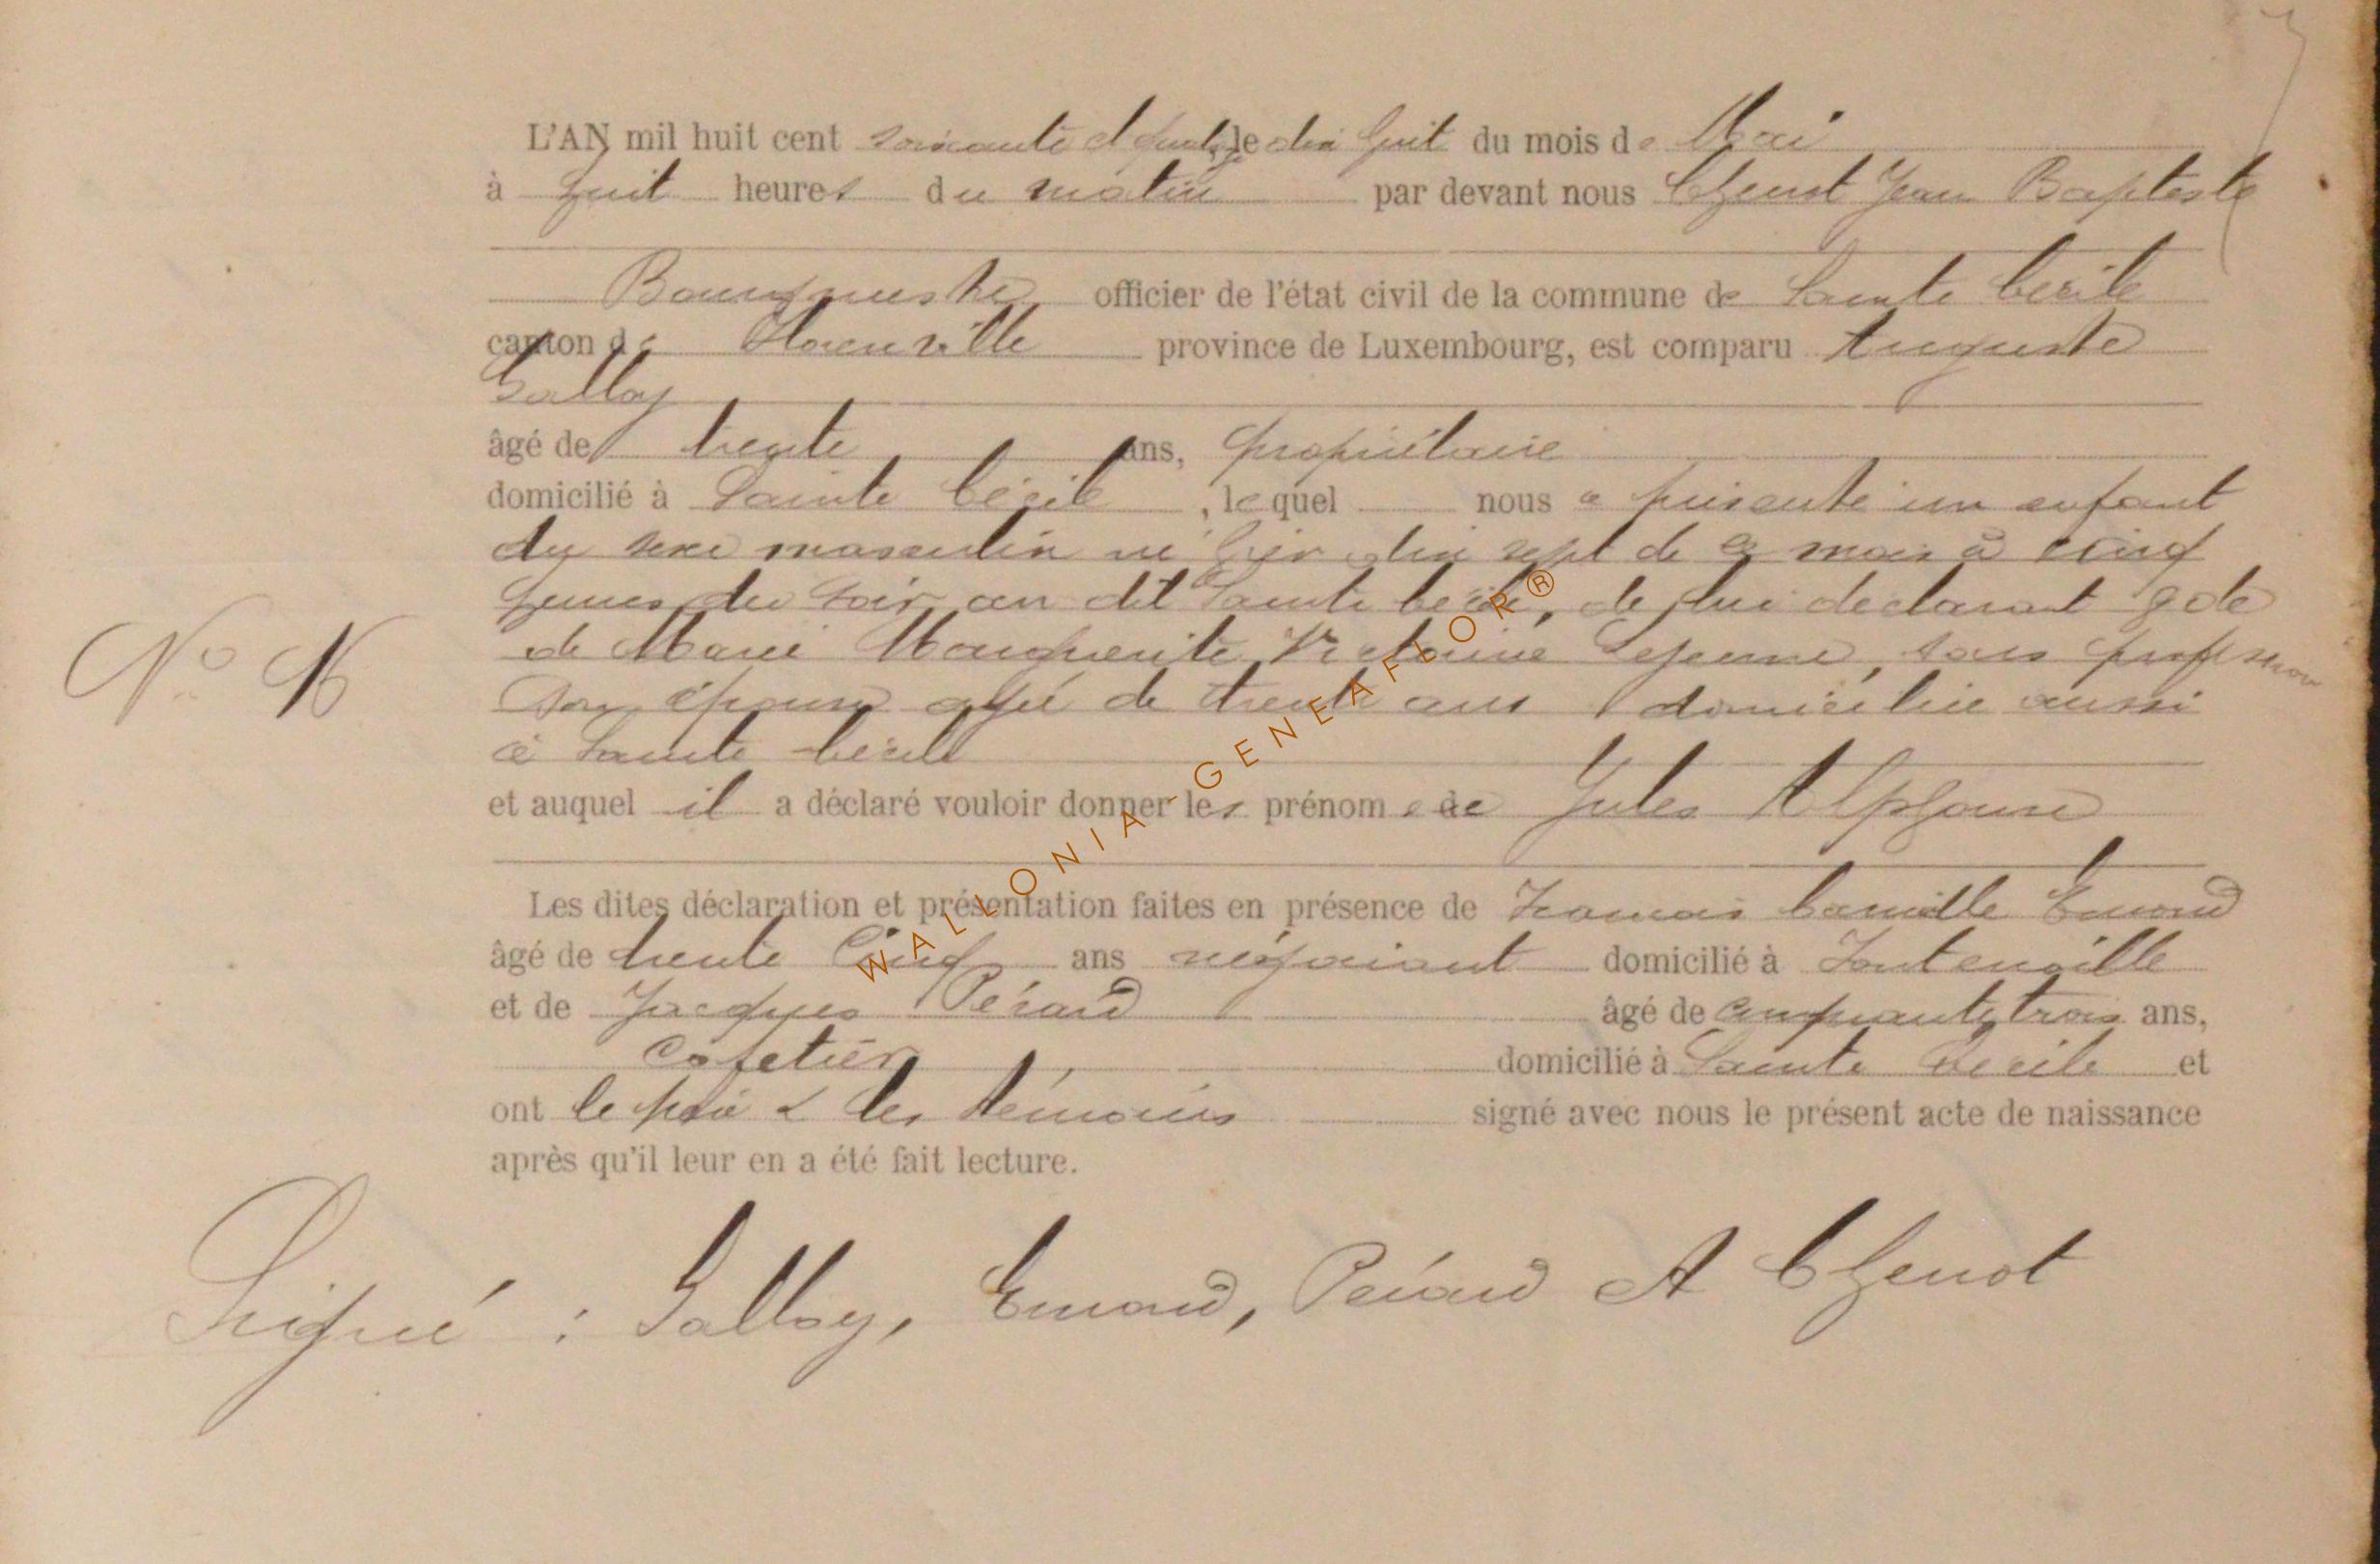 L'AN mil huit cent soixante et quatorze le dix huit du mois de Mai
à huit heures du matin par devant nous Chenot Jean Baptiste
Bourgmestre officier de l'état civil de la commune de Sainte Cécile
canton de Florenville province de Luxembourg, est comparu Auguste
Galloy
âgé de trente ans, propriétaire
domicilié à Sainte Cécile, lequel nous a présenté un enfant
du sexe masculin né hier dix sept de ce mois à cinq
heures du soir au dit Sainte Cécile, de lui déclarant & de
de Marie Marguerite Victorine Lejeune, sans profession
son épouse agée de trente ans domiciliée aussi
à Sainte Cécile
N° 16
et auquel il a déclaré vouloir donner les prénoms de Jules Alphonse
Les dites déclaration et présentation faites en présence de François Camille Emond
âgé de trente cinq ans négociant domicilié à Fontenoille
et de Jacques Pérard âgé de cinquante trois ans,
cafetier domicilié à Sainte Cécile et
ont le père & les témoins signé avec nous le présent acte de naissance
après qu'il leur en a été fait lecture.
Signé : Galloy, Emond, Pérard et Chenot
WALLONIA - GENEAFLOR®